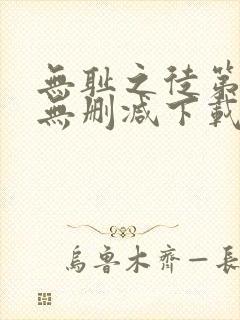 無耻之徒第
無删减下載
烏魯木齊—長